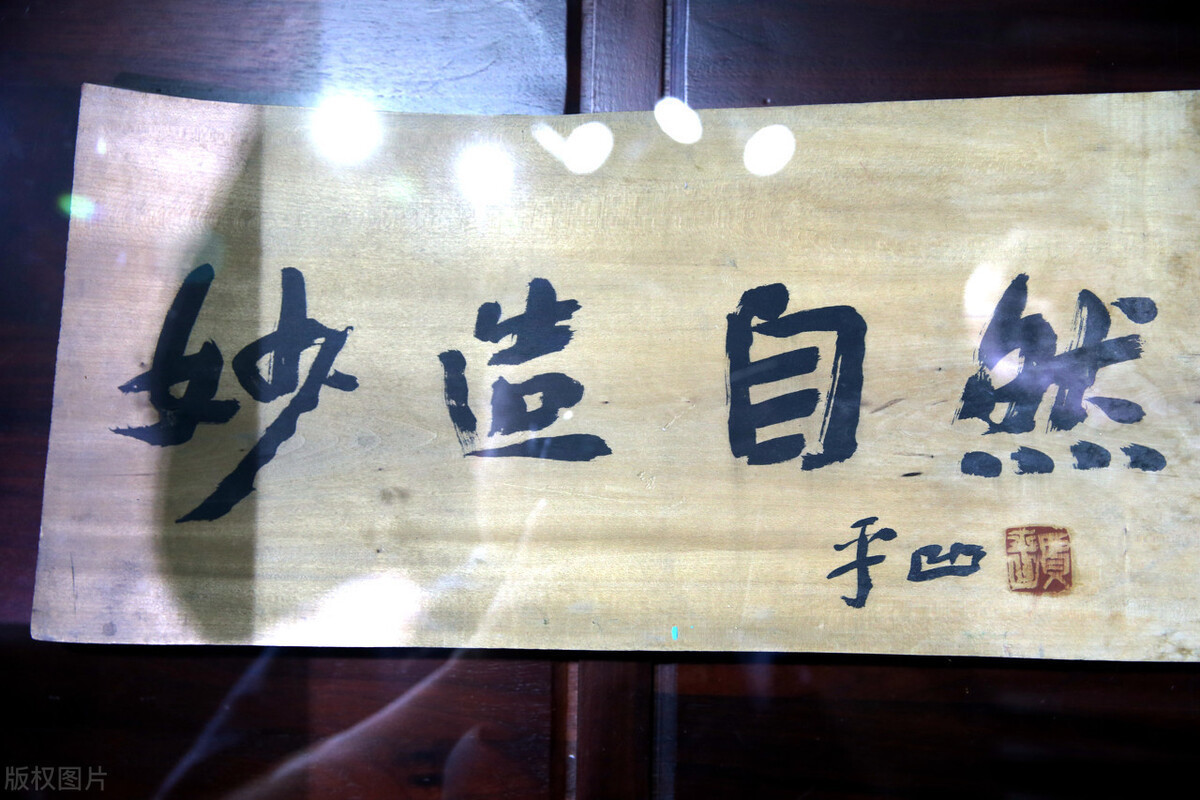 妙造自然
平凹
版权图片